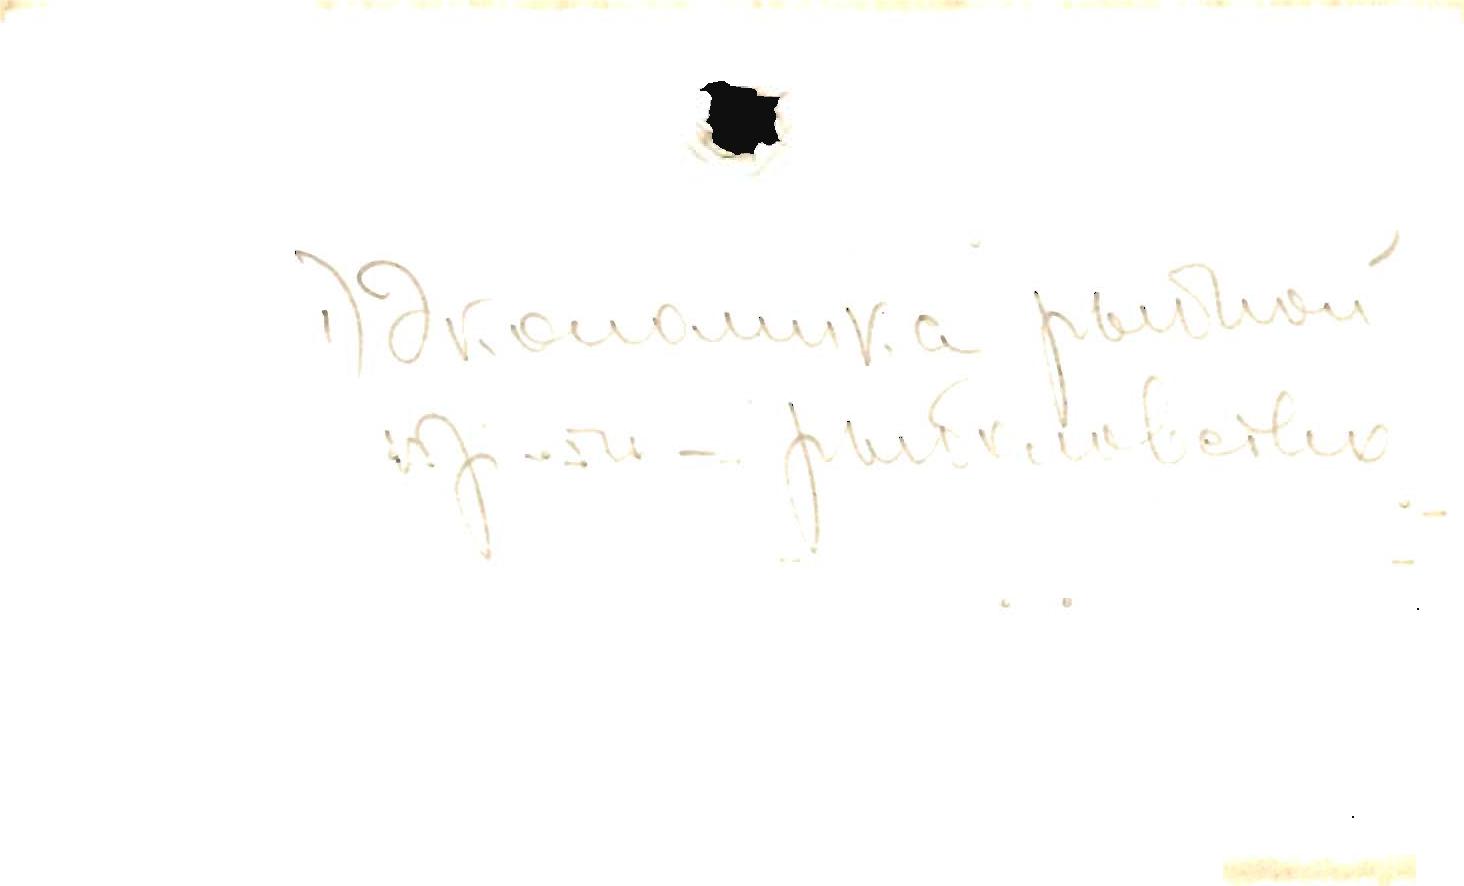 1) Экономика рыбной
пр-ти — рыболовство